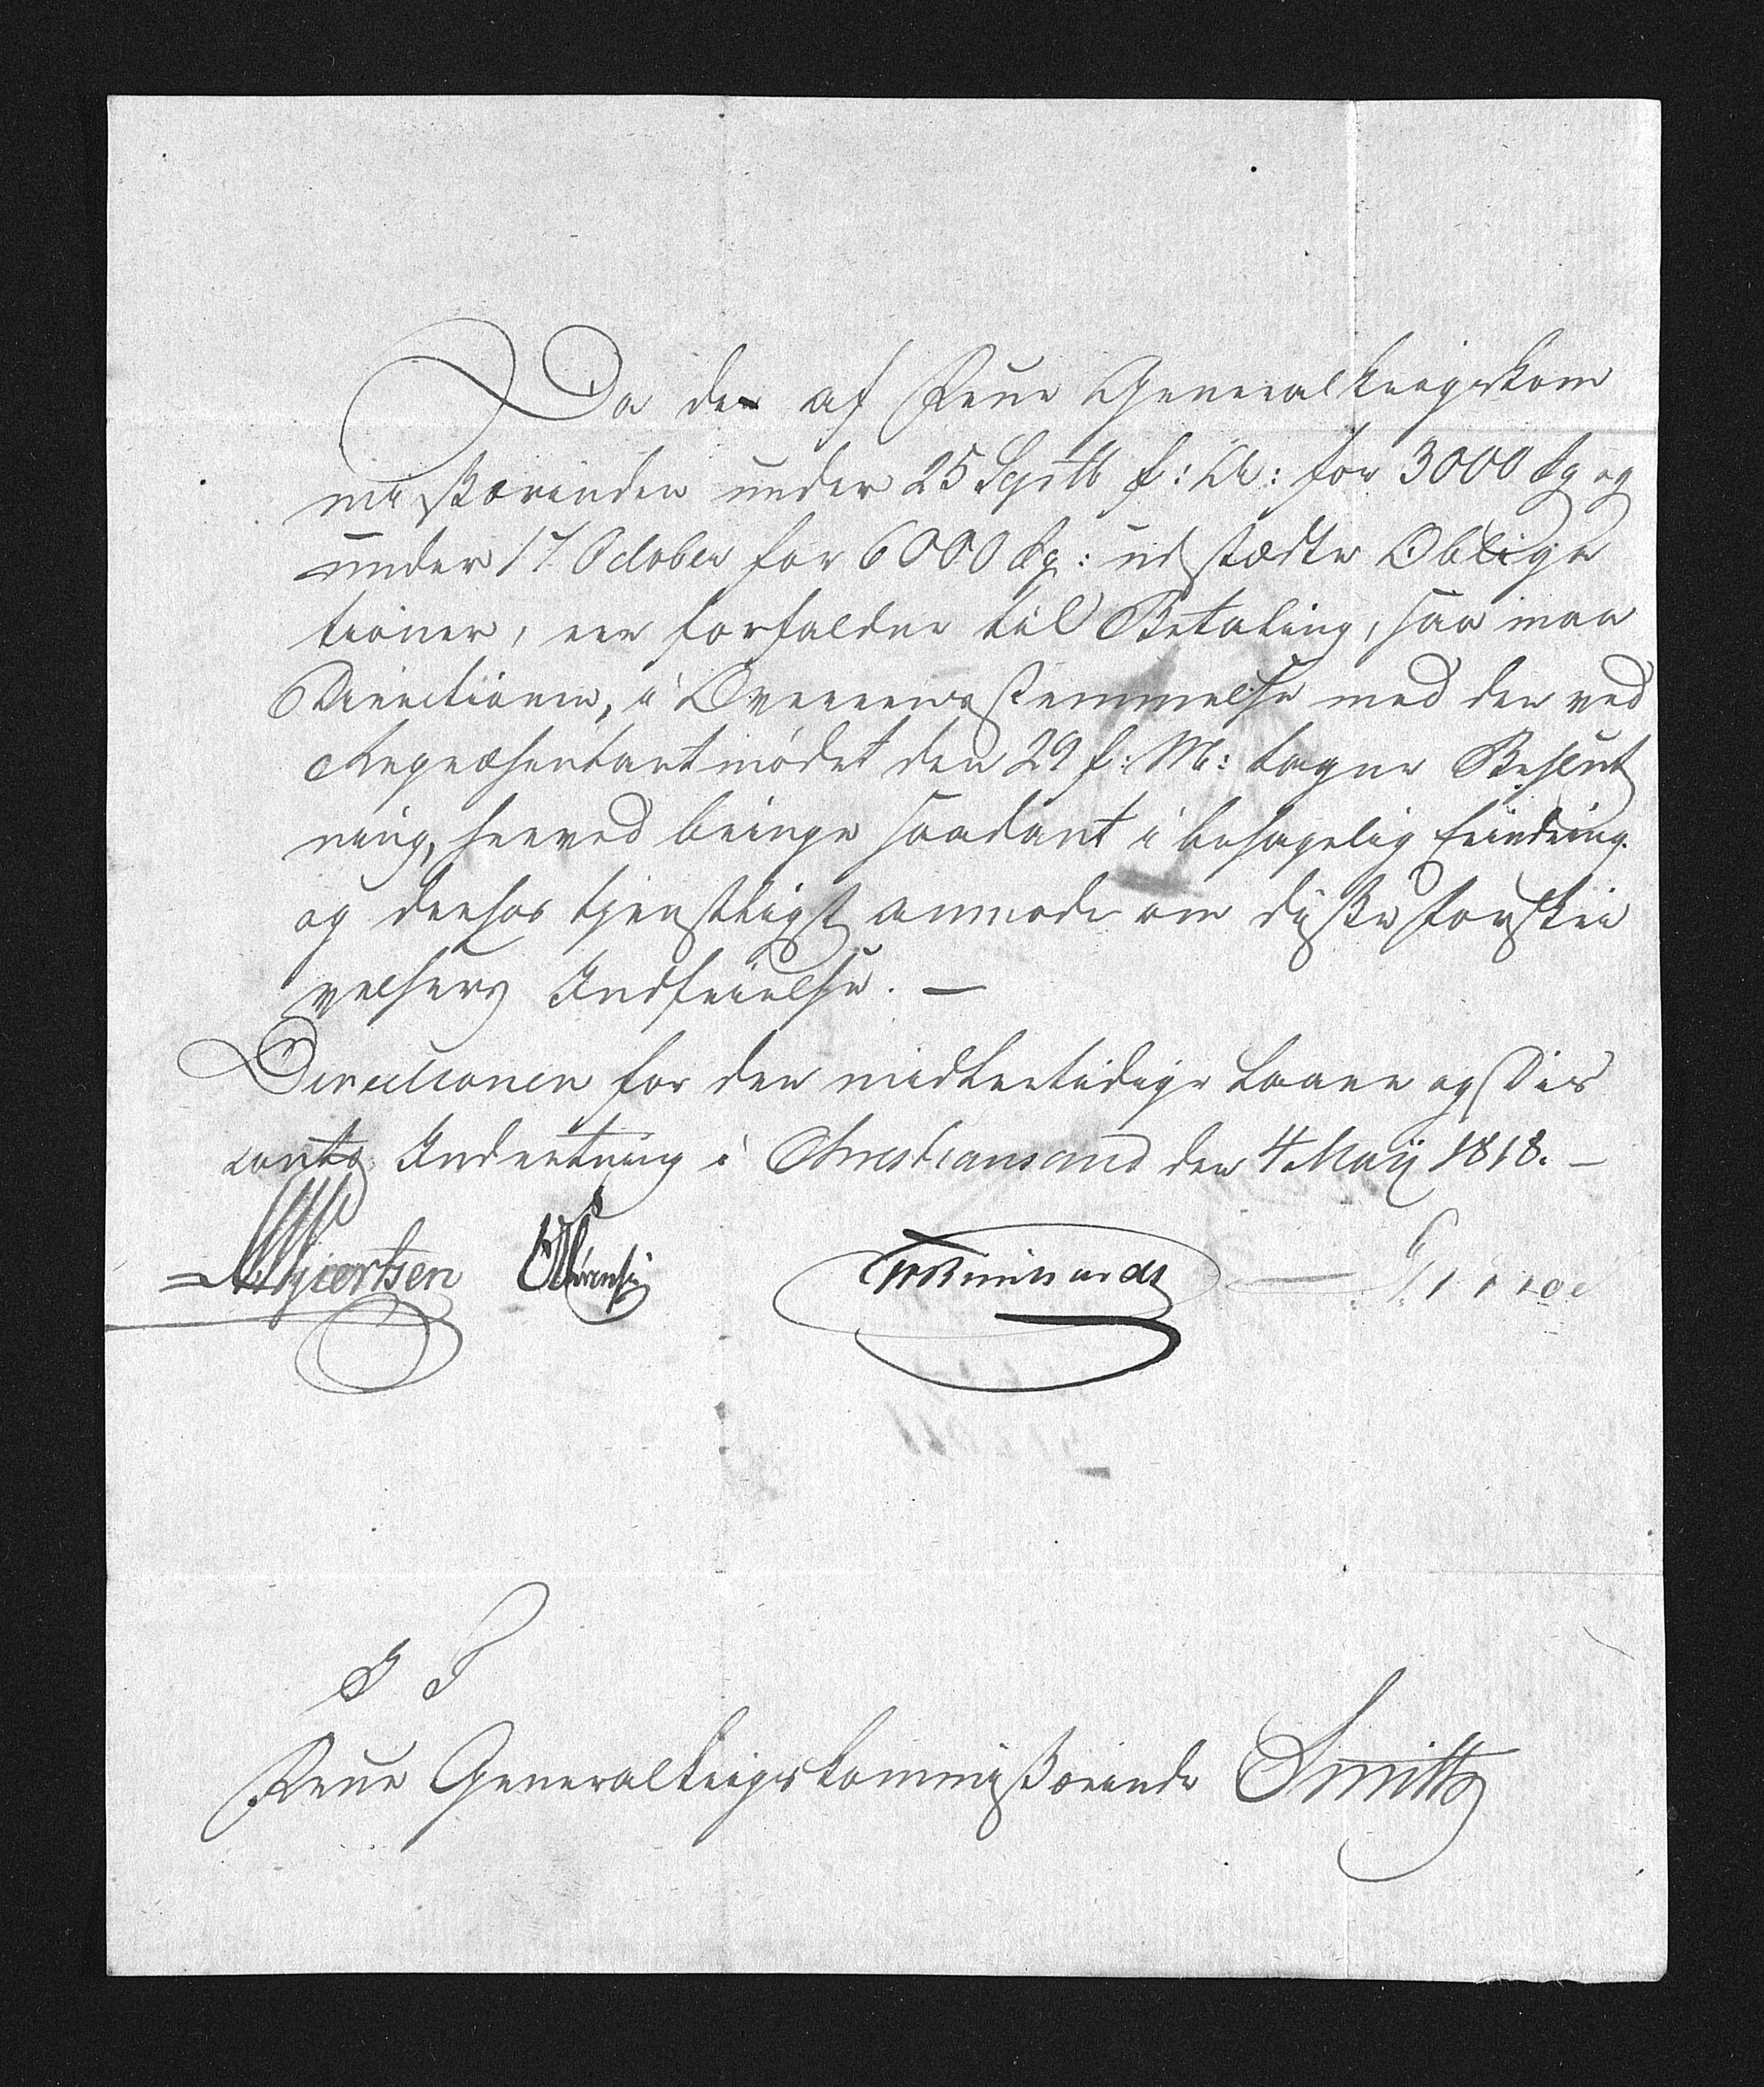 Da de af Frue Generalkrigskom
missærinden under 25 Septb f: A: for 3000 Sp og
under 17 October for 6000 Sp: udstædte Obliga
tioner, ere forfaldne til Betaling, saa maa
Directionen, i Overeensstemmelse med den ved
Repræsentantmødet den 29 f: M: tagne Beslut
ning, herved bringe saadant i behagelig Erindring
og derhos tjenstligst anmode om disse Forskri
velsers Indfrielse. —
Directionen for den midlertidige Laane og Dis
conto Indretning i Christiansand den 4 Maij 1818. —
Reinhardt
S T
Frue Generalkrigskommissærinde Smith